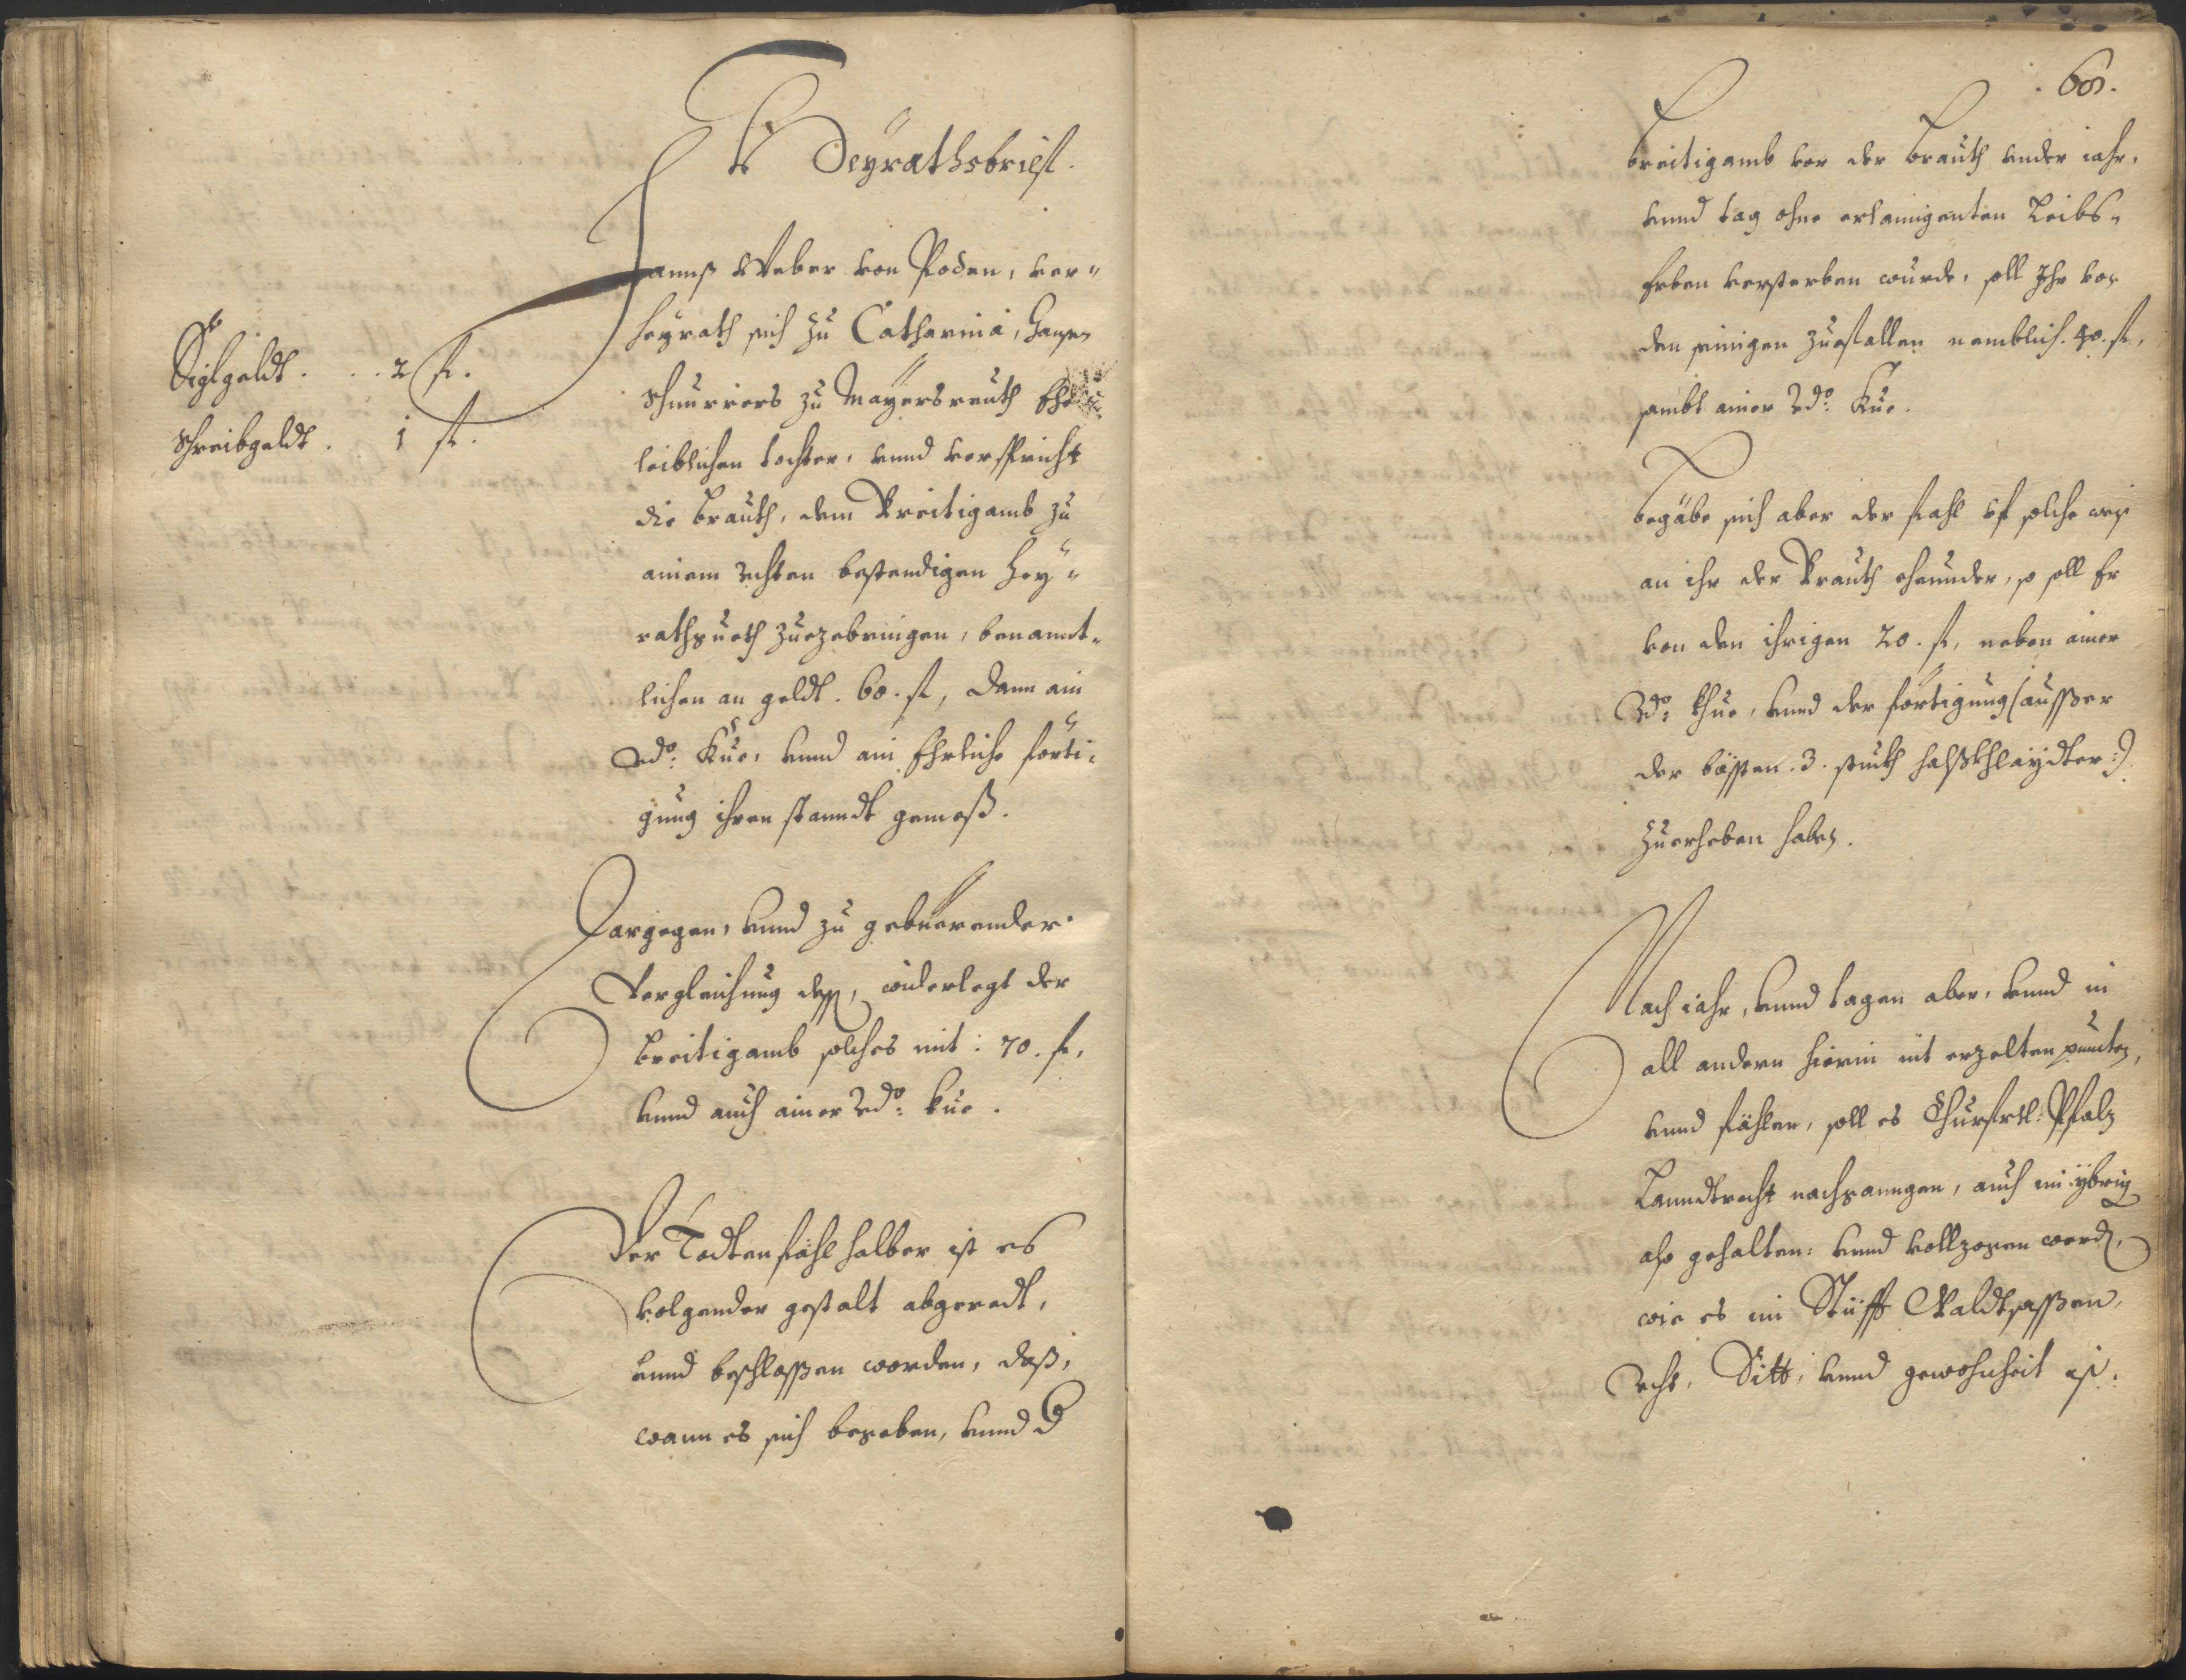 Heyrathsbrieff.
Siglgeldt . . . 2 fl.
Schreibgeldt . 1 fl.
Hannß Weber von Poden, ver-
heyrath sich zu Catharina, Hansen
Schnurrers zu Mayersreuth Ehe
leiblichen tochter, vnnd verspricht
die Brauth, dem Breitigamb zu
ainem rechten bestendigen Hey-
rathgueth zuezebringen, benannt-
lichen an geldt . 60 . fl, dann ain
Rdo: Kue, vnnd ain Ehrliche förti-
gung ihren standt gemeß.
Dargegen, vnnd zu gebuerender
Vergleichung deß, widerlegt der
Breitigamb solches mit : 70 . fl,
vnnd auch ainer Rdo: kue .
Der Todtenfähl halber ist es
volgender gestalt abgeredt,
vnnd beschlossen worden, daß,
wann es sich begeben, vnnd d
Breitigamb vor der Brauth vnder iahr,
vnnd tag ohne erlainigenten Leibs-
Erben versterben wurde, soll Ihr von
den seinigen zuefallen nemblich . 40 . fl,
sambt ainer Rdo: Kue .
Begäbe sich aber der fahl vf solche weiß
an ihr der Brauth ehunder, so soll Er
von den ihrigen 20 . fl, neben ainer
Rdo: khue, vnnd der förtigung (ausser
der bössten . 3 . stuckh halßkhlaydter :)
zuerheben haben .
Nach iahr, vnnd tagen aber, vnnd in
all andern hierin nit erzelten puncten,
vnnd fählen, soll es Churfrtl: Pfalz
Lanndtrecht nachganngen, auch im ybrig
also gehalten: vnnd vollzogen werd,
wie es im Stüfft Waldtsassen,
Recht, Sitt, vnnd gewohnheit ist .